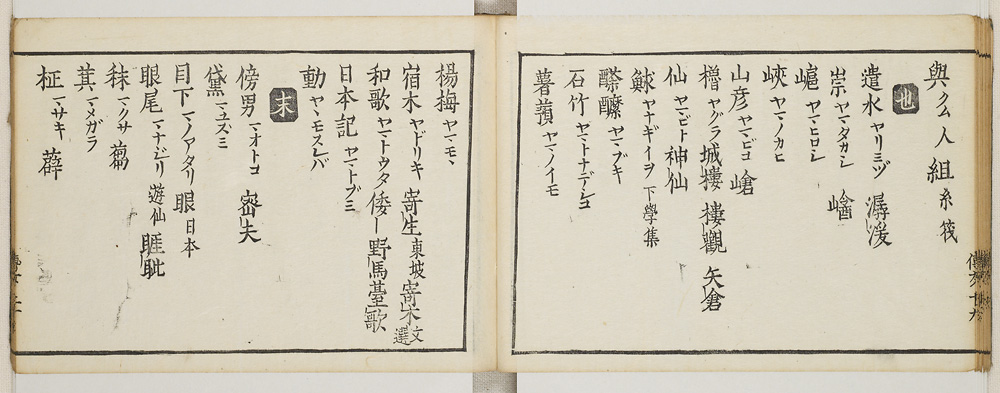 與クム人 組糸 筏
也
遣水ヤリミヅ 潺湲
崇ヤマタカシ 嵱
嵼ヤマヒロシ
峽ヤマノカヒ
山彦ヤマビコ 㟏
櫓ヤグラ 城樓 樓觀 矢倉
仙ヤマビト 神仙
鮱ヤナギイヲ 下學集
醾ヤマブキ
石竹ヤマトナデシコ
薯蕷ヤマノイモ
楊梅ヤマモヽ
宿木ヤドリキ 寄生東坡 寄木文選
和歌ヤマトウタ 倭ー 野馬臺歌
日本記ヤマトブミ
動ヤヽモスレバ
末
傍男マオトコ 密夫
黛マユズミ
目下マノアタリ 眼日本
眼尾マナジリ 遊仙 睚眦
秣マクサ 蒭
萁マメガラ
柾マサキ 薜